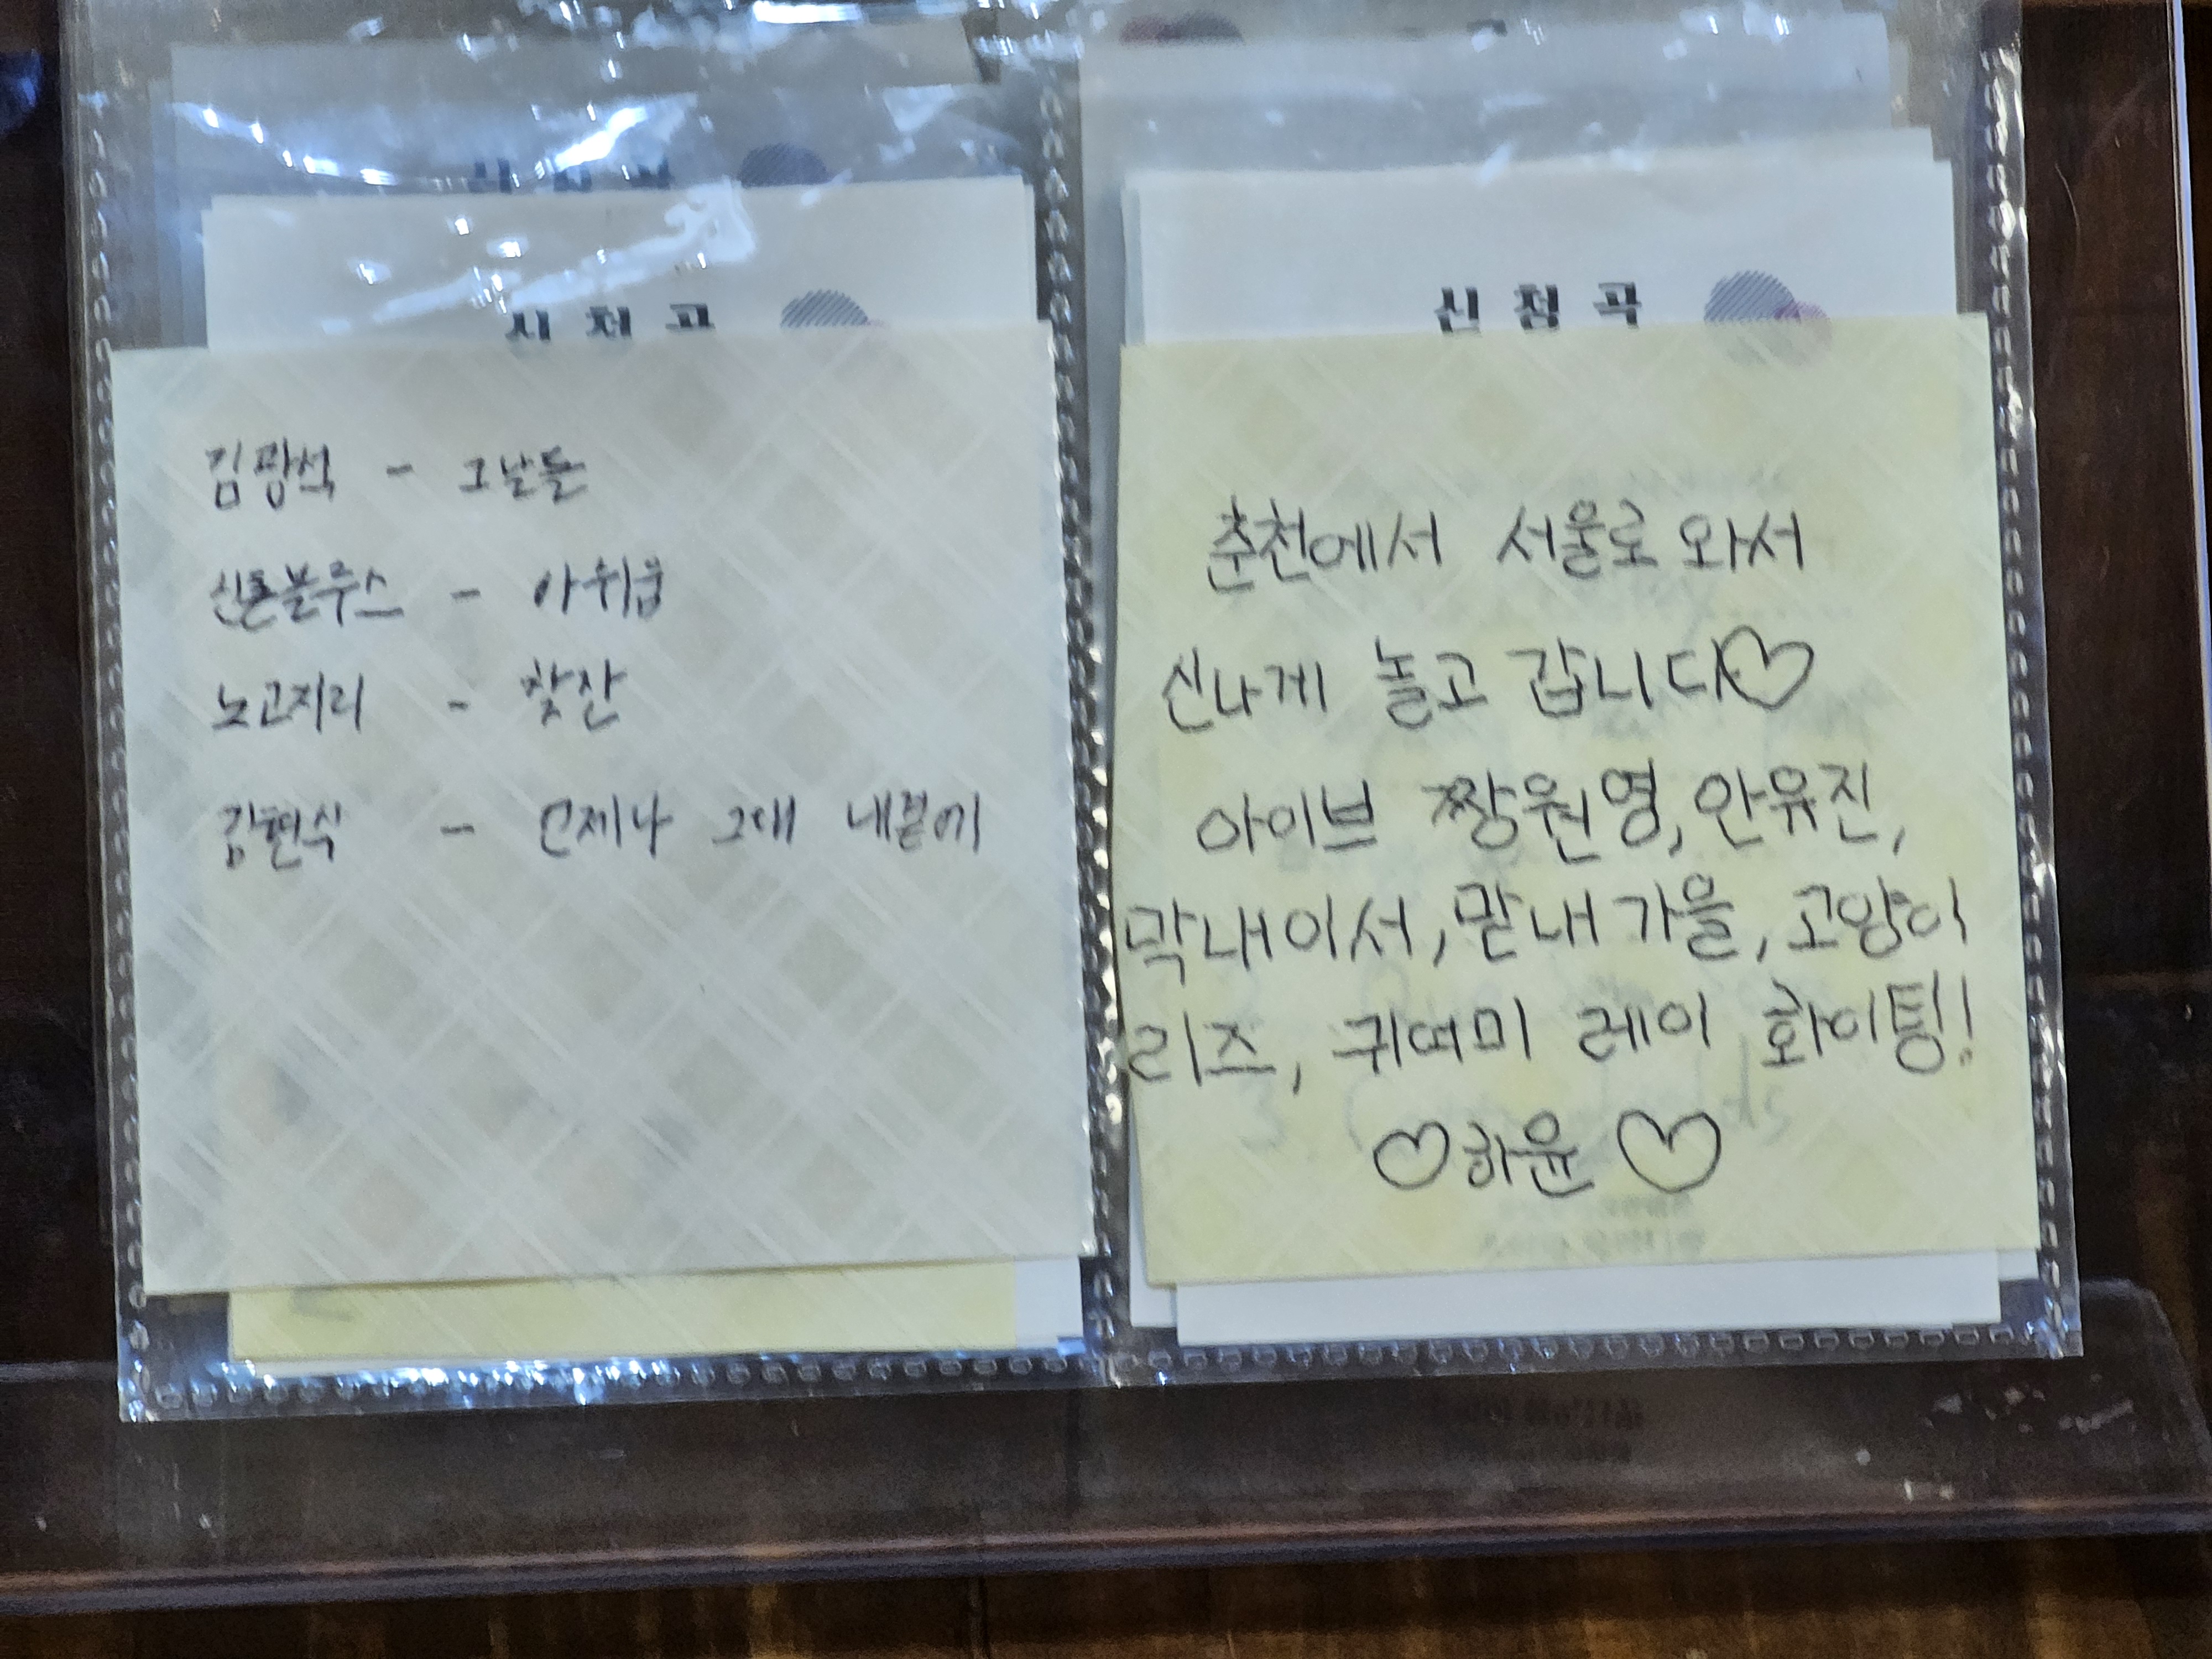 신청곡
김광석 - 그날들
신촌블루스 - 아쉬움
노고지리 - 찻잔
김현식 - 언제나 그대 내곁에
신청곡
춘천에서 서울로 와서
신나게 놀고 갑니다♡
아이브 짱원영, 안유진,
막내이서, 맏내가을, 고양이
리즈, 귀여미 레이 화이팅!
♡하윤♡